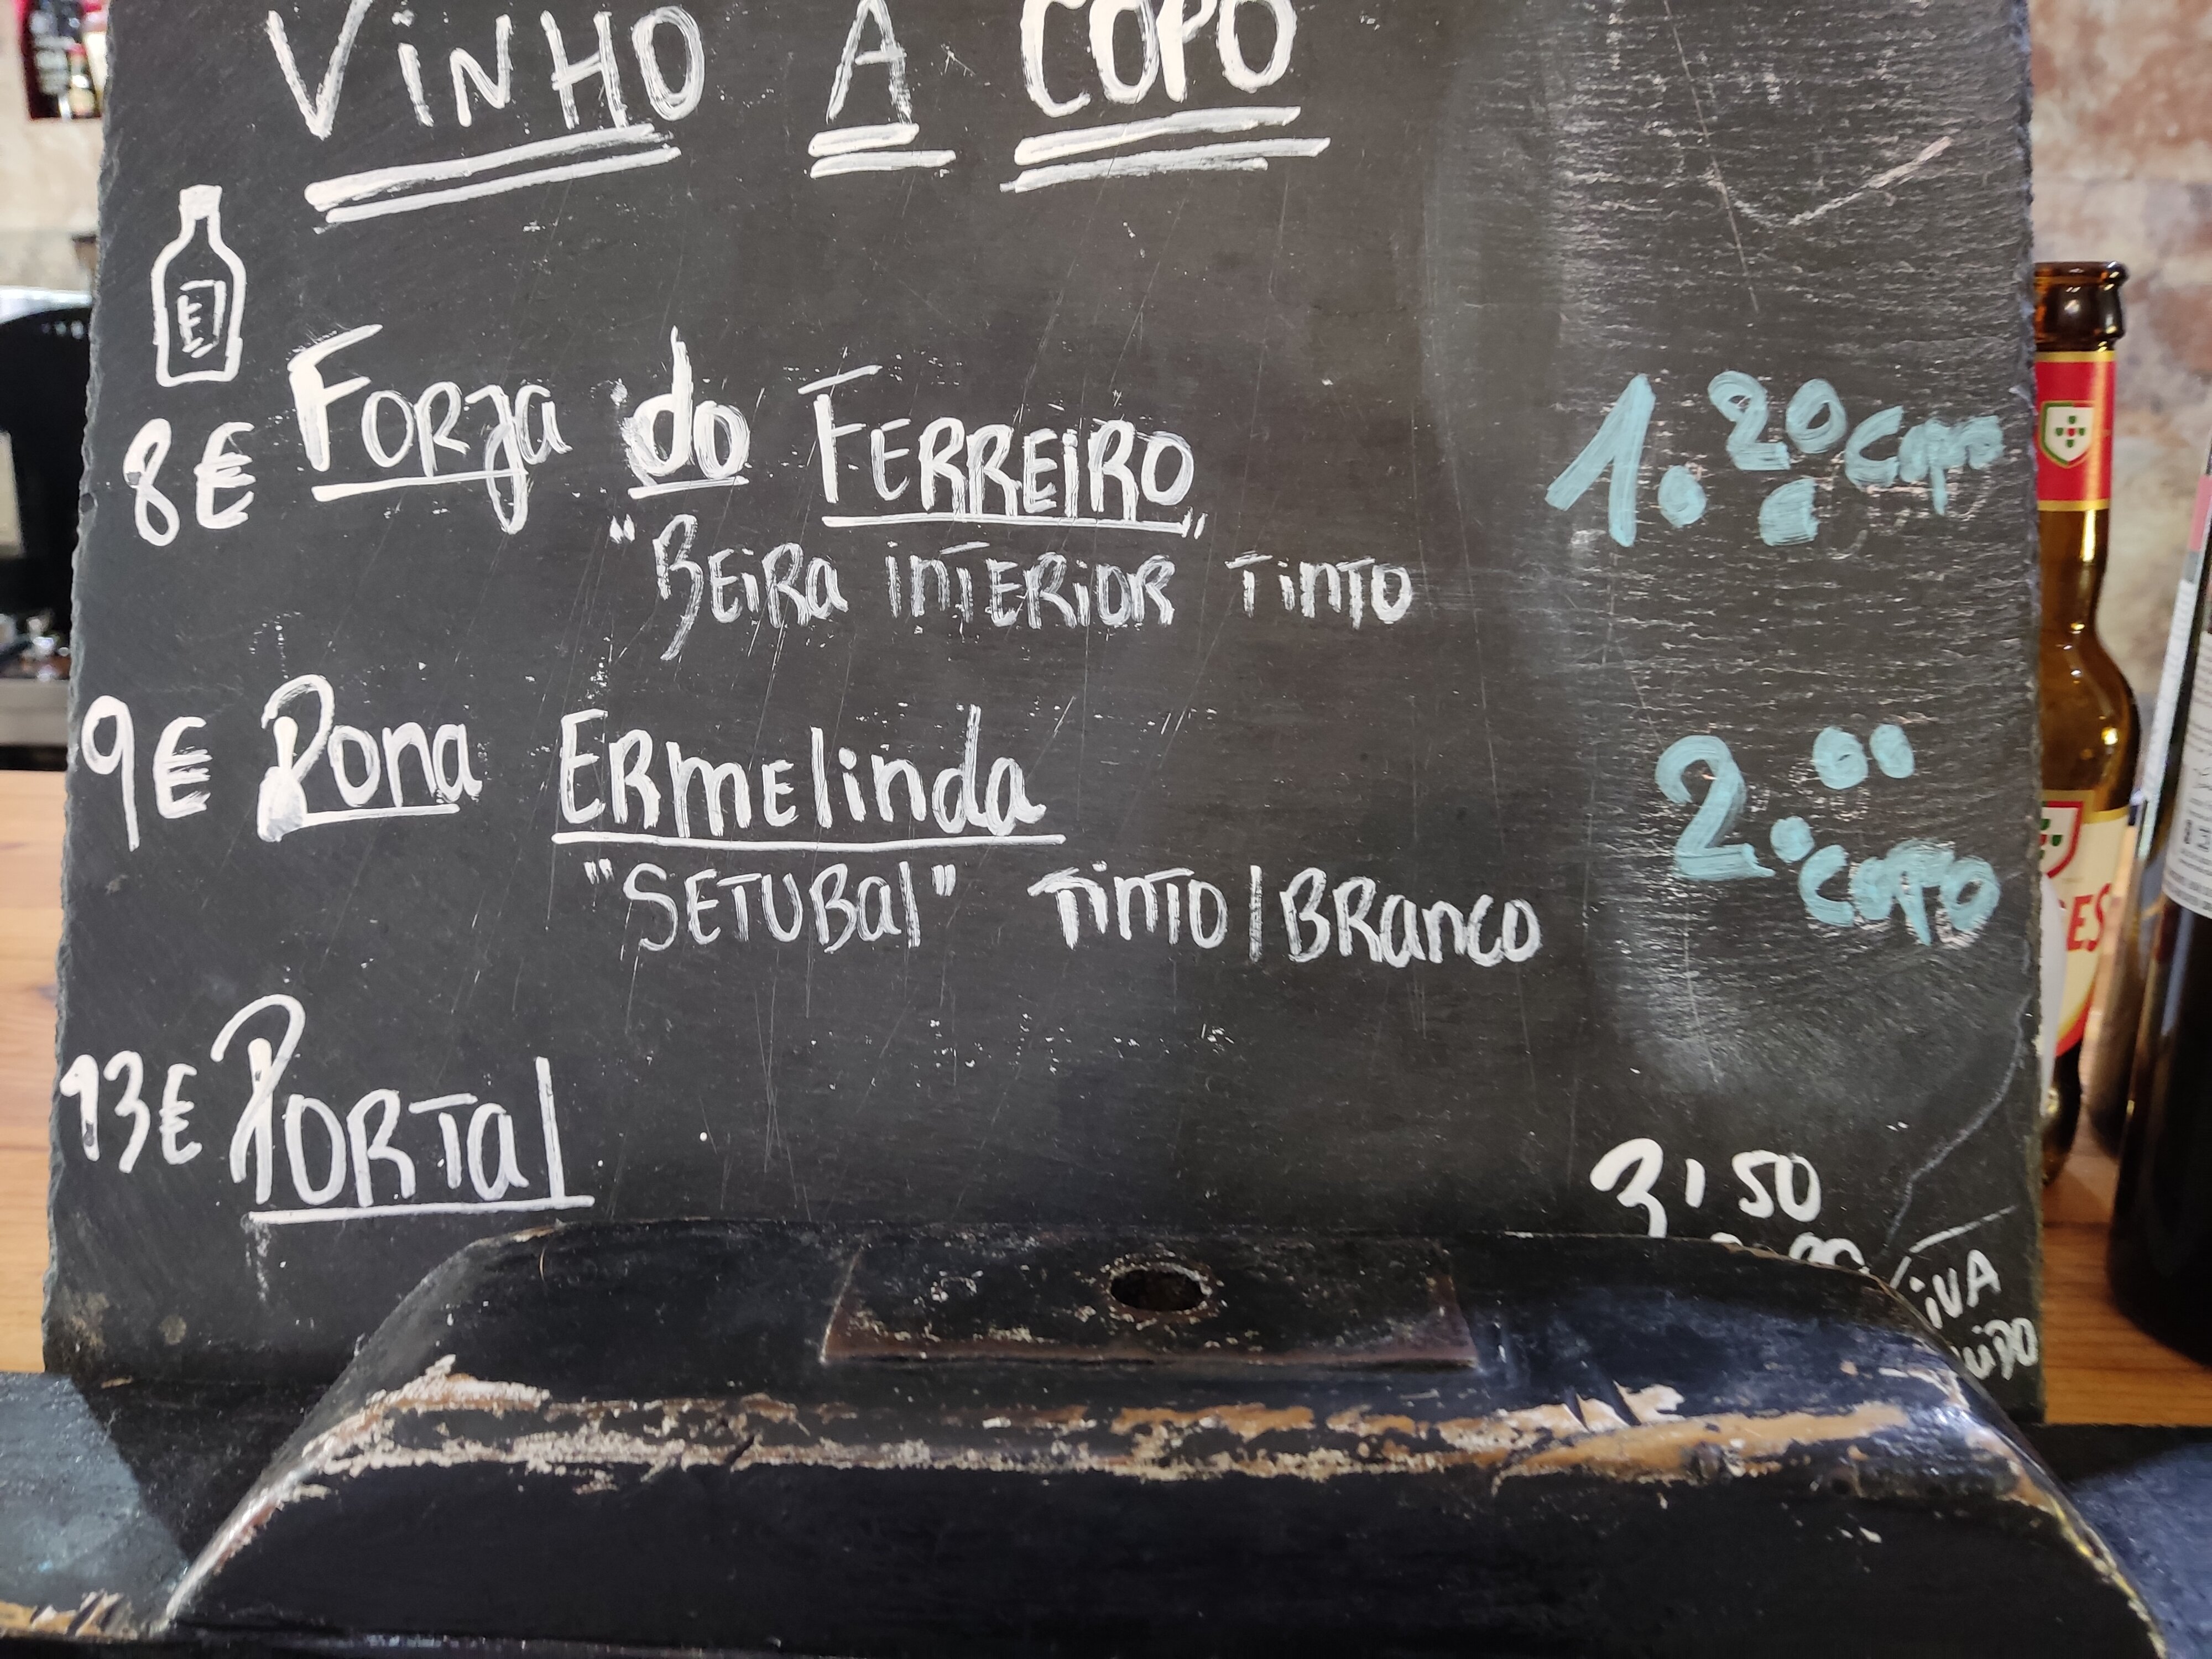 VINHO A COPO
8€ FORJA do FERREIRO 1.20 copo
"BEIRA INTERIOR" TINTO
9€ Dona ERmelinda 2.00 COPO
"SETUBal" TINTO/BRanco
13€ PORTal 3,50
IVA